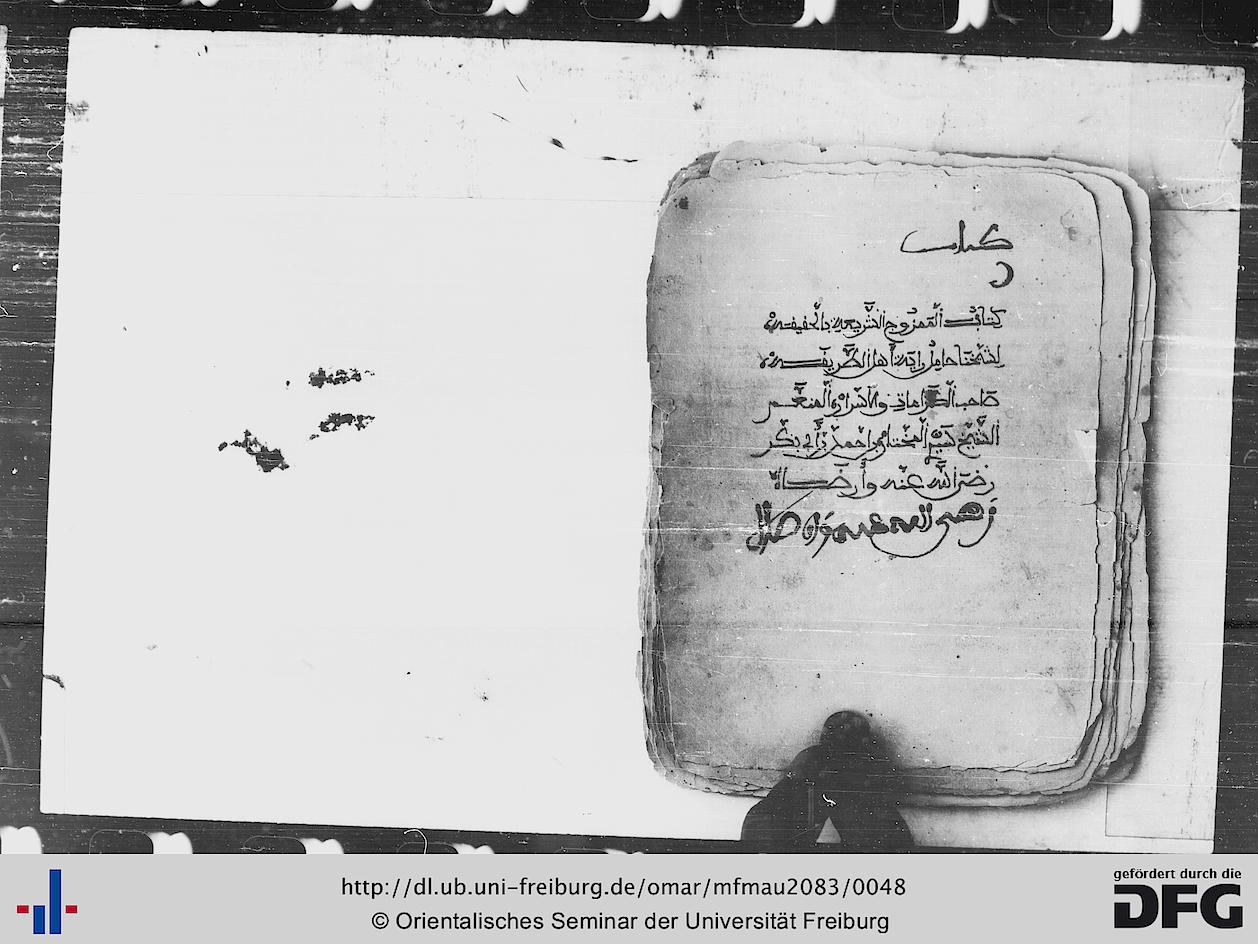 كتاب
كتاب الممزوج الشريعة بالحقيقة
لشيخنا حامل راية أهل الطريقة
صاحب الكرامات والأسرار المنعم
الشيخ سيد المختار بن أحمد بن أبي بكر
رضي الله عنه وأرضاه
رضي الله عنه
http://dl.ub.uni-freiburg.de/omar/mfmau2083/0048
© Orientalisches Seminar der Universität Freiburg
gefördert durch die
DFG